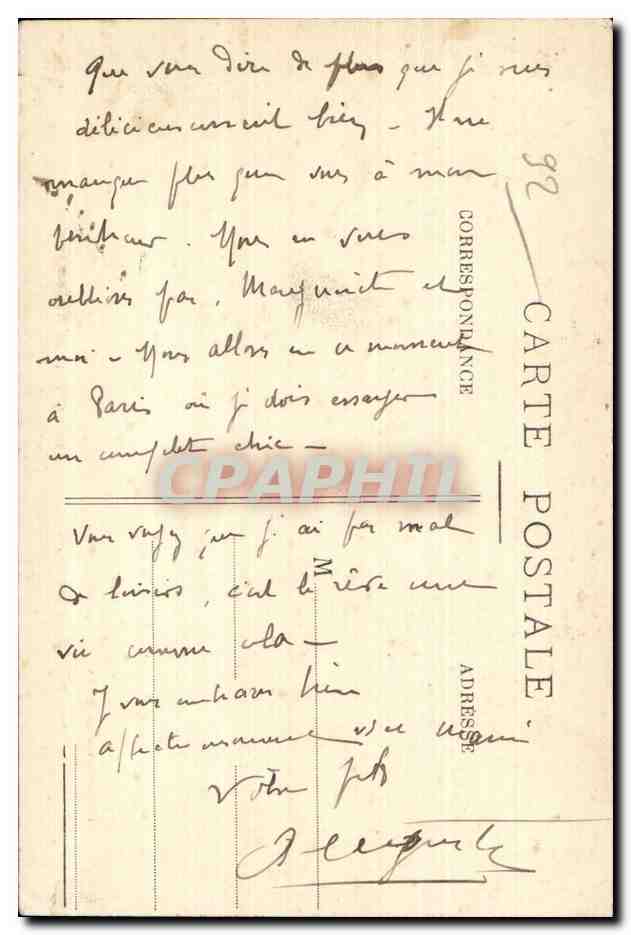 Que vous dire de plus que je suis
délicieusement bien – Il ne
manque plus que vous à mon
bonheur. Nous ne vous
oublions pas, Marguerite et
moi – Nous allons en ce moment
à Paris où je dois essayer
un complet chic –
Vous voyez que j'ai pas mal
de loisirs, c'est le rêve une
vie comme cela –
Je vous embrasse bien
affectueusement
Votre fils
92
CARTE POSTALE
CORRESPONDANCE
M
ADRESSE
CPAPHIL